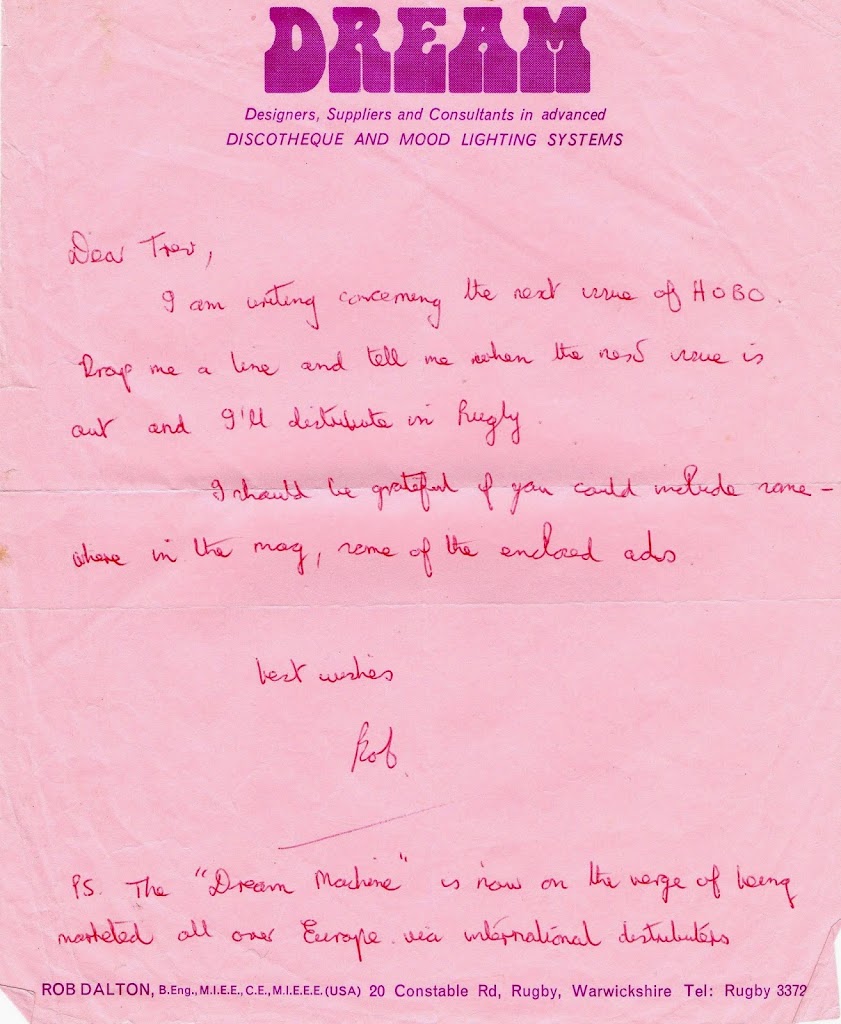 DREAM
Designers, Suppliers and Consultants in advanced
DISCOTHEQUE AND MOOD LIGHTING SYSTEMS
Dear Trev,
I am writing concerning the next issue of HOBO.
Drop me a line and tell me when the next issue is
out and I'll distribute in Rugby.
I should be grateful if you could include some-
where in the mag, some of the enclosed ads
best wishes
Rob.
PS. The "Dream Machine" is now on the verge of being
marketed all over Europe via international distributers
ROB DALTON, B.Eng., M.I.E.E., C.E., M.I.E.E.E. (USA) 20 Constable Rd, Rugby, Warwickshire Tel: Rugby 3372